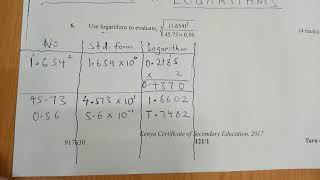 LOGARITHMS
6. Use logarithms to evaluate, ∛((1.654)² / (45.73 × 0.56)) (4 marks)
No Std form Logarithm
1.654² 1.654 × 10⁰ 0.2185
× 2
0.4370
45.73 4.573 × 10¹ 1.6602
0.56 5.6 × 10⁻¹ 1̅.7482
Kenya Certificate of Secondary Education, 2017
917430 121/1 Turn